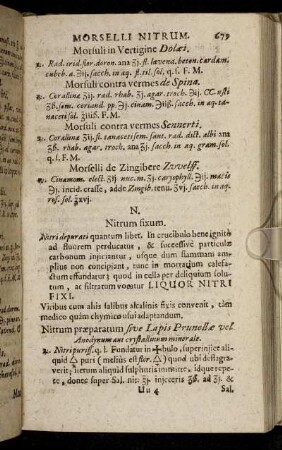 MORSELLI NITRUM. 679
Morsuli in Vertigine Dolæi.
℞. Rad. irid. flor. doron. ana ʒj. st. lævena. beton. cardam.
cubeb. a ℈ij. sacch. in aq. fl. til. sol. q. s. F. M.
Morsuli contra vermes de Spina.
℞. Corallina ʒij. rad. rhab. ʒj. agar. troch. ℈ij. CC. usti
ʒß. sem. coriand. pp. ℈j. cinam. ℈iiß. sacch. in aq. ta-
naceti sol. ℥iiiß. F. M.
Morsuli contra vermes Sennerti.
℞. Corallina ʒij. sl. tanaceti sem. sant. rad. dict. albi ana
ʒß. rhab. agar. troch. ana ʒj. sacch. in aq. gram. sol.
q. s. F. M.
Morselli de Zingibere Zwelff.
℞. Cinamom. elect. ʒvj nuc. m. ʒj. caryophyll. ℈ij. macis
℈j. incid. crasse, adde Zingib. tenu. ʒvj. sacch. in aq.
ros. sol. ℥xvj.
N.
Nitrum fixum.
Nitri depurati quantum libet. In crucibulo bene ignito
ad fluorem perducatur, & successive particulæ
carbonum injiciantur, usque dum flammam am-
plius non concipiant, tunc in mortarium calefa-
ctum effundatur; quod in cella per deliquium solu-
tum, ac filtratum vocatur LIQUOR NITRI
FIXI.
Viribus cum aliis salibus alcalinis fixis convenit, tàm
medico quàm chymico usui adaptandum.
Nitrum præparatum sive Lapis Prunellæ vel
Anodynum aut crystallinum minerale.
℞. Nitri puriss. q. l. Fundatur in ✢bulo, superinjice ali-
quid 🜂 puri (melius est flor.) quod ubi deflagra-
verit; iterum aliquid sulphuris immitte, idque repe-
te, donec super Sal. nitr. ℥j. injeceris ʒß. ad ʒj. &
Uu 4 Sal.